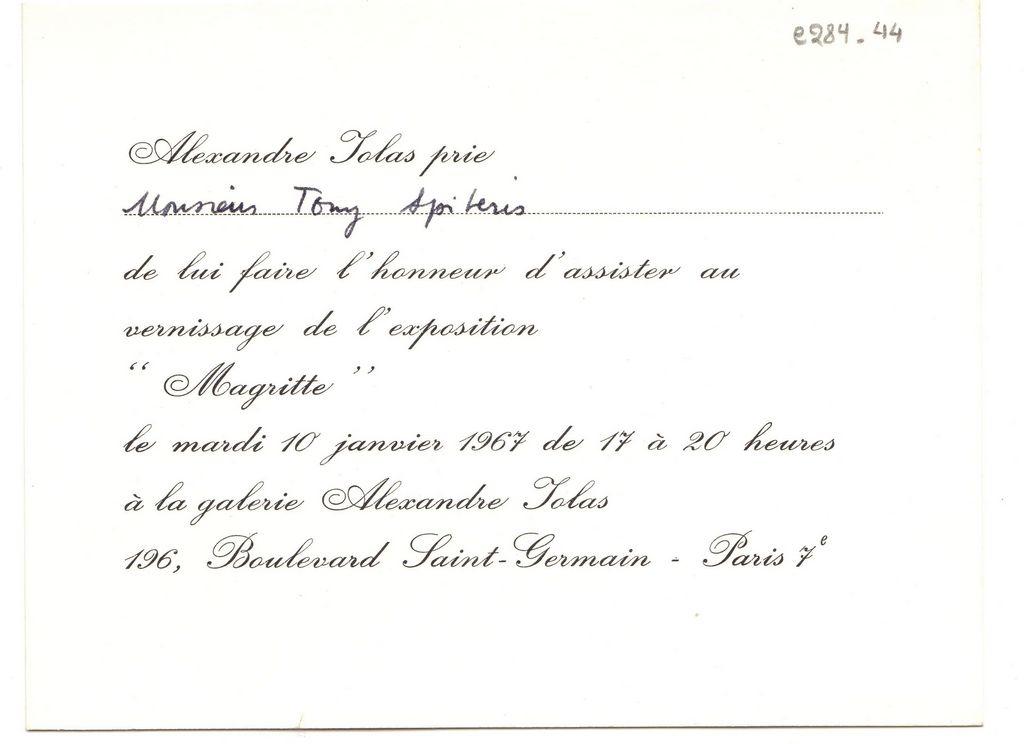 e284-44
Alexandre Iolas prie
Monsieur Tony Spiteris
de lui faire l'honneur d'assister au
vernissage de l'exposition
“ Magritte ”
le mardi 10 janvier 1967 de 17 à 20 heures
à la galerie Alexandre Iolas
196, Boulevard Saint-Germain - Paris 7e